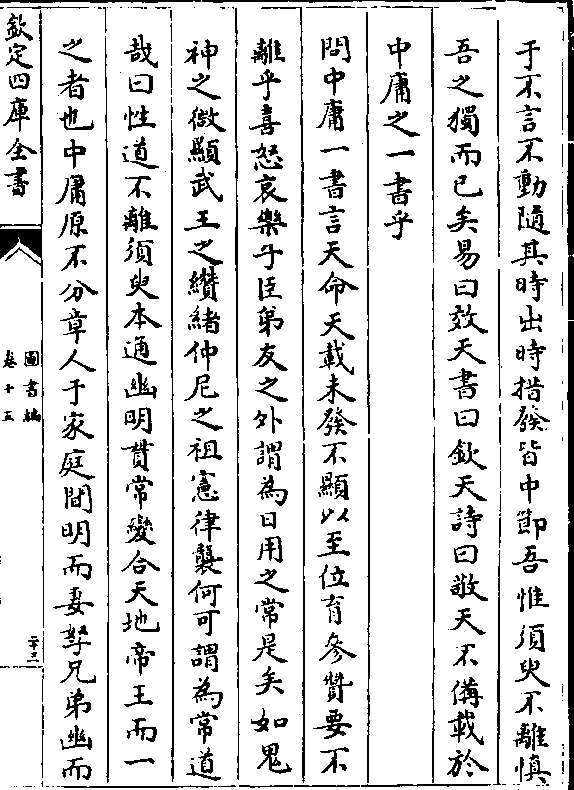 于不言不動隨其時出時措發皆中節吾惟須臾不離慎
吾之獨而已矣易曰效天書曰欽天詩曰敬天不備載於
中庸之一書乎
問中庸一書言天命天載未發不顯以至位育參贊要不
離乎喜怒哀樂子臣弟友之外謂為日用之常是矣如鬼
神之微顯武王之纘緒仲尼之祖憲律襲何可謂為常道
哉曰性道不離須臾本通幽明貫常變合天地帝王而一
之者也中庸原不分章人于家庭間明而妻孥兄弟幽而
欽定四庫全書
圖書編
卷十五
二十三